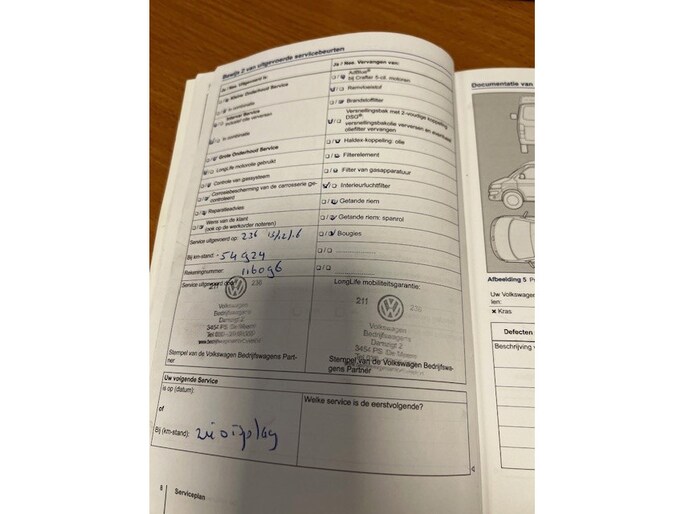 Bewijs 2 van uitgevoerde servicebeurten
Ja / Nee. Uitgevoerd is:
Ja / Nee. Vervangen van:
Kleine Onderhoud Service
AdBlue®
bij Crafter 5-cil. motoren
'n combinatie
Remvloeistof
Interval Service
inclusief olie verversen
Brandstoffilter
'n combinatie
Versnellingsbak met 2-voudige koppeling
DSG®:
versnellingsbakolie verversen en eventueel
oliefilter vervangen
Grote Onderhoud Service
Haldex-koppeling: olie
LongLife motorolie gebruikt
Filterelement
Controle van gassysteem
Filter van gasapparatuur
Corrosiebescherming van de carrosserie ge-
controleerd
Interieurluchtfilter
Reparatieadvies
Getande riem
Wens van de klant
(ook op de werkorder noteren)
Getande riem: spanrol
Service uitgevoerd op:
Bougies
Bij km-stand: 54924
Rekeningnummer: 116096
Service uitgevoerd door:
LongLife mobiliteitsgarantie:
211 236
211 236
Volkswagen
Bedrijfswagens
Damzigt 2
3454 PS De Meern
Volkswagen
Bedrijfswagens
Damzigt 2
3454 PS De Meern
Stempel van de Volkswagen Bedrijfswagens Part-
ner
Stempel van de Volkswagen Bedrijfswa-
gens Partner
Uw volgende Service
is op (datum):
Welke service is de eerstvolgende?
of
Bij (km-stand): zie display
8 Serviceplan
Documentatie van
Afbeelding 5
Uw Volkswagen
len:
× Kras
Defecten
Beschrijving